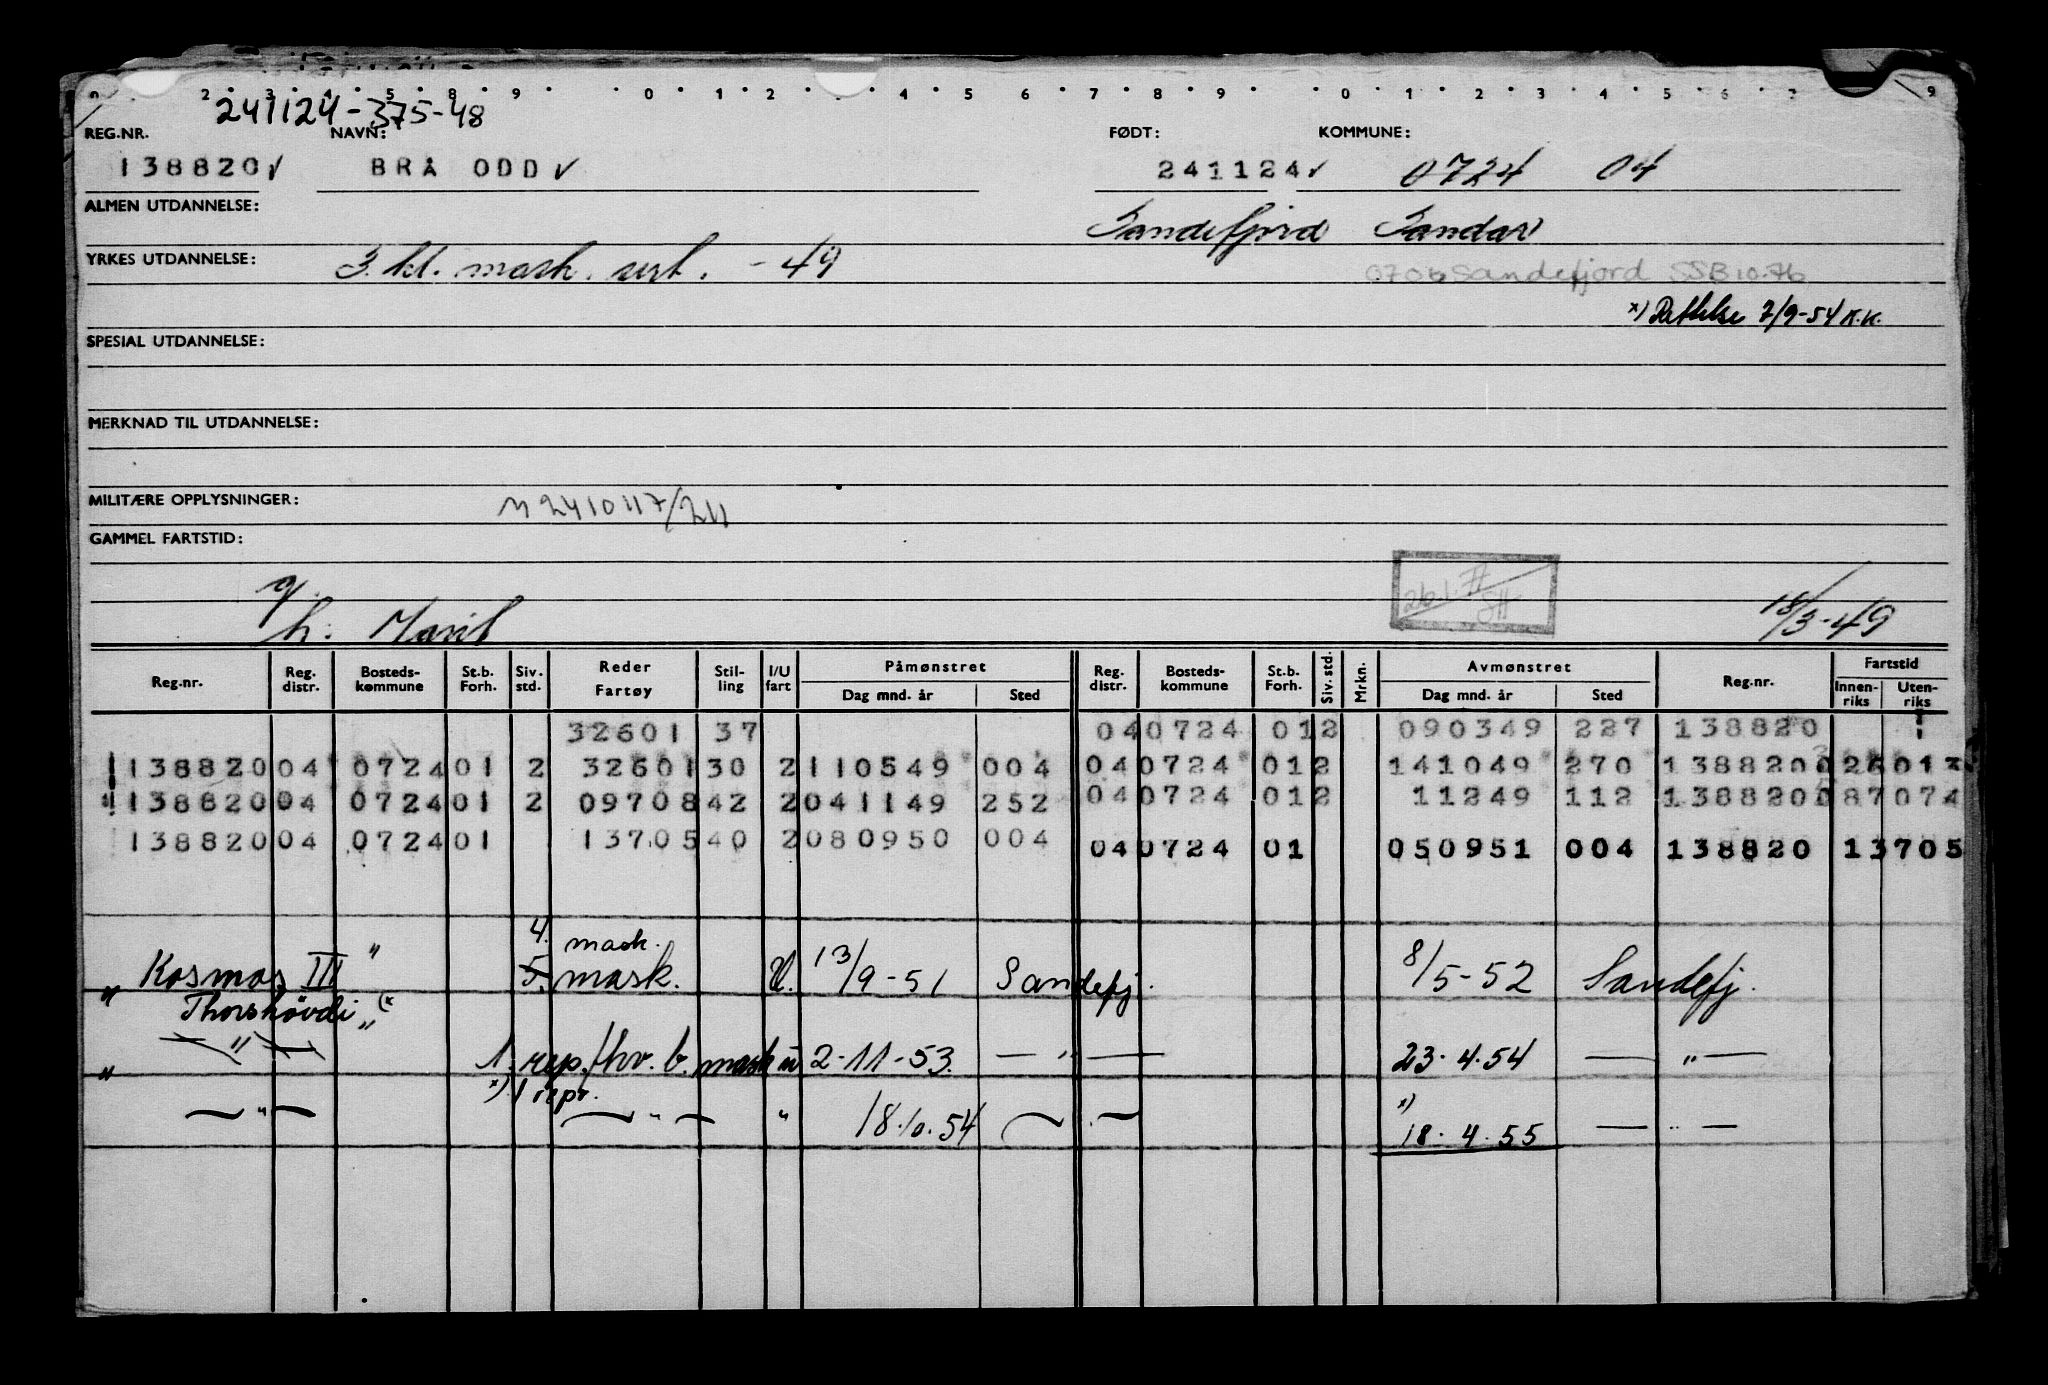 241124-375-48
REG.NR. NAVN: FØDT: KOMMUNE:
138820✓ BRÅ ODD✓ 241124✓ 0724 04
ALMEN UTDANNELSE: Sandefjord Sandar
YRKES UTDANNELSE: 3. kl. mask. sert. - 49 0706 Sandefjord SSB 10.76
x) Rettelse 7/9-54 K.K.
SPESIAL UTDANNELSE:
MERKNAD TIL UTDANNELSE:
MILITÆRE OPPLYSNINGER: M 2410117/211
GAMMEL FARTSTID:
g.
h: Marit 18/3-49
Reg.nr. Reg. distr. Bosteds-kommune St.b. Forh. Siv. std. Reder Fartøy Stil-ling I/U fart Påmønstret Dag mnd. år Sted Reg. distr. Bosteds-kommune St.b. Forh. Siv. std. Mrkn. Avmønstret Dag mnd. år Sted Reg.nr. Fartstid Innen-riks Uten-riks
32601 37 04 0724 01 2 090349 227 138820
138820 04 0724 01 2 32601 30 2 110549 004 04 0724 01 2 141049 270 138820
138820 04 0724 01 2 09708 42 2 041149 252 04 0724 01 2 11249 112 138820
138820 04 0724 01 13705 40 2 080950 004 04 0724 01 050951 004 138820 13705
4. mask.
Kosmos III " 5. mask. U. 13/9-51 Sandefj. 8/5-52 Sandefj.
" Thorshövdi " (x
" — " — 1. rep./hv. b. mask u 2-11-53. — " — 23.4.54 — " —
x) 1 repr.
— " — — " — " 18.10.54 — . — x) 18.4.55 — " —